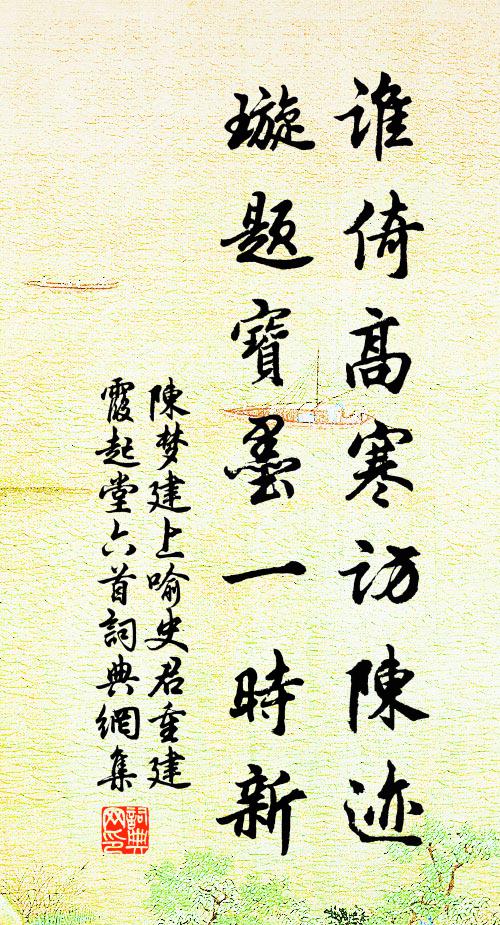 谁倚高寒访陳迹
璇题寶墨一時新
陳梦建上喻史君重建
霞起堂六首詞典網集
詞典网印